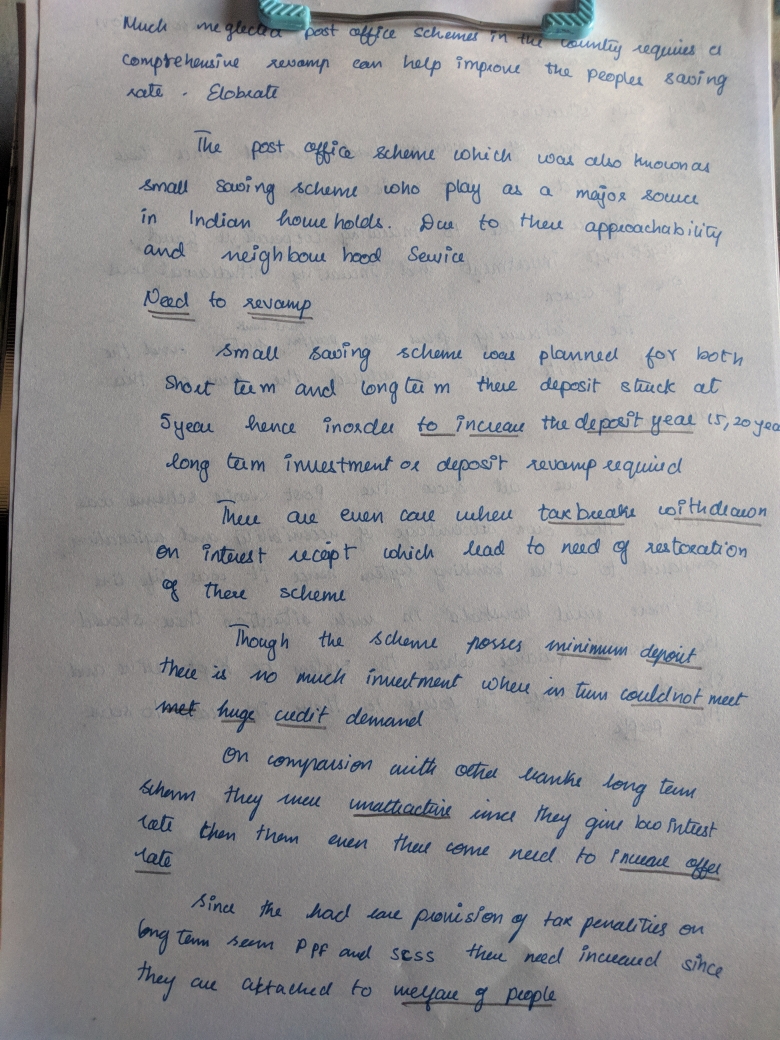 Much neglected post office schemes in the country requires a
comprehensive revamp can help improve the peoples saving
rate. Elobrate
The post office scheme which was also known as
small saving scheme who play as a major source
in Indian house holds. Due to there approachability
and neighbour hood Service
Need to revamp
Small saving scheme was planned for both
Short term and long term there deposit stuck at
5year hence inorder to increase the deposit year 15, 20 yea
long term investment or deposit revamp required
There are even case where tax breaks withdrawn
on interest receipt which lead to need of restoration
of these scheme
Though the scheme posses minimum deposit
there is no much investment where in turn could not meet
met huge credit demand
On comparsion with other banks long term
schem they were unattractive since they give low intrest
rate then them even there come need to increase offer
rate
Since the had provision of tax penalities on
long term PPF and SCSS there need increased since
they are attached to welfare of people